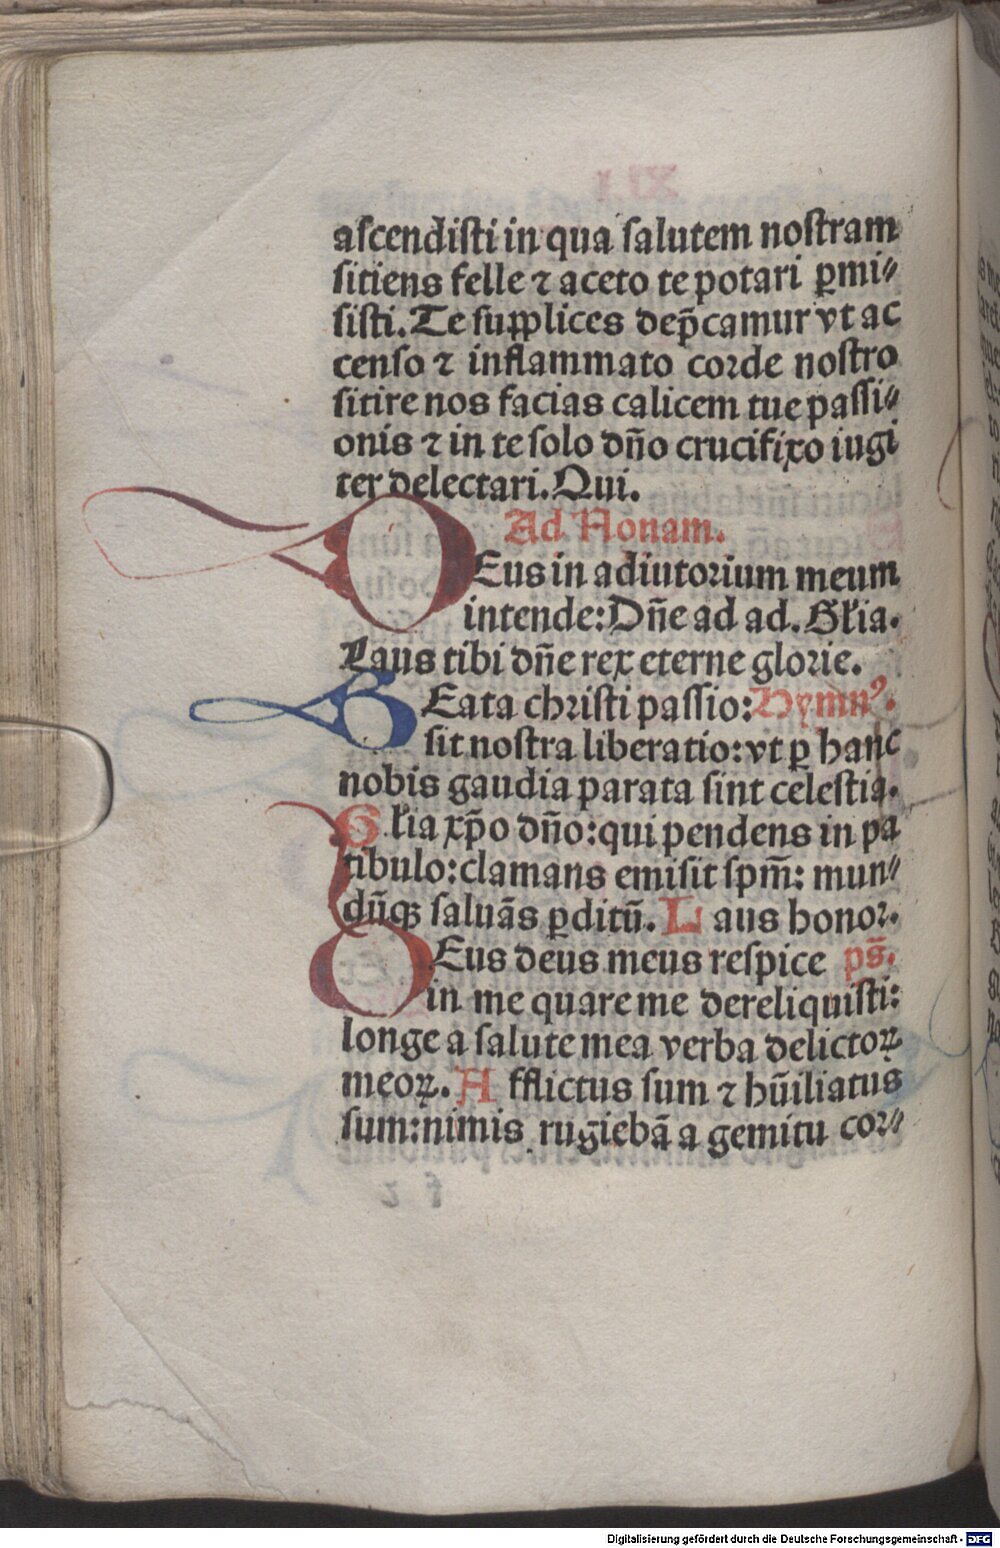 ascendisti in qua salutem nostram
sitiens felle ⁊ aceto te potari ꝑmi⸗
sisti. Te supplices dep̃camur vt ac
censo ⁊ inflammato corde nostro
sitire nos facias calicem tue passi⸗
onis ⁊ in te solo dño crucifixo iugi
ter delectari. Qui.
Ad Nonam.
DEus in adiutorium meum
intende: Dñe ad ad. Głia.
Laus tibi dñe rex eterne glorie.
BEata christi passio: Hymnꝰ.
sit nostra liberatio: vt ꝑ hanc
nobis gaudia parata sint celestia.
Głia xp̃o dño: qui pendens in pa
tibulo: clamans emisit spm̃: mun⸗
dũqꝫ saluãs ꝑditũ. Laus honor.
DEus deus meus respice ps̃.
in me quare me dereliquisti:
longe a salute mea verba delictoꝝ
meoꝝ. Afflictus sum ⁊ hũiliatus
sum: nimis rugiebã a gemitu cor⸗
Digitalisierung gefördert durch die Deutsche Forschungsgemeinschaft - DFG